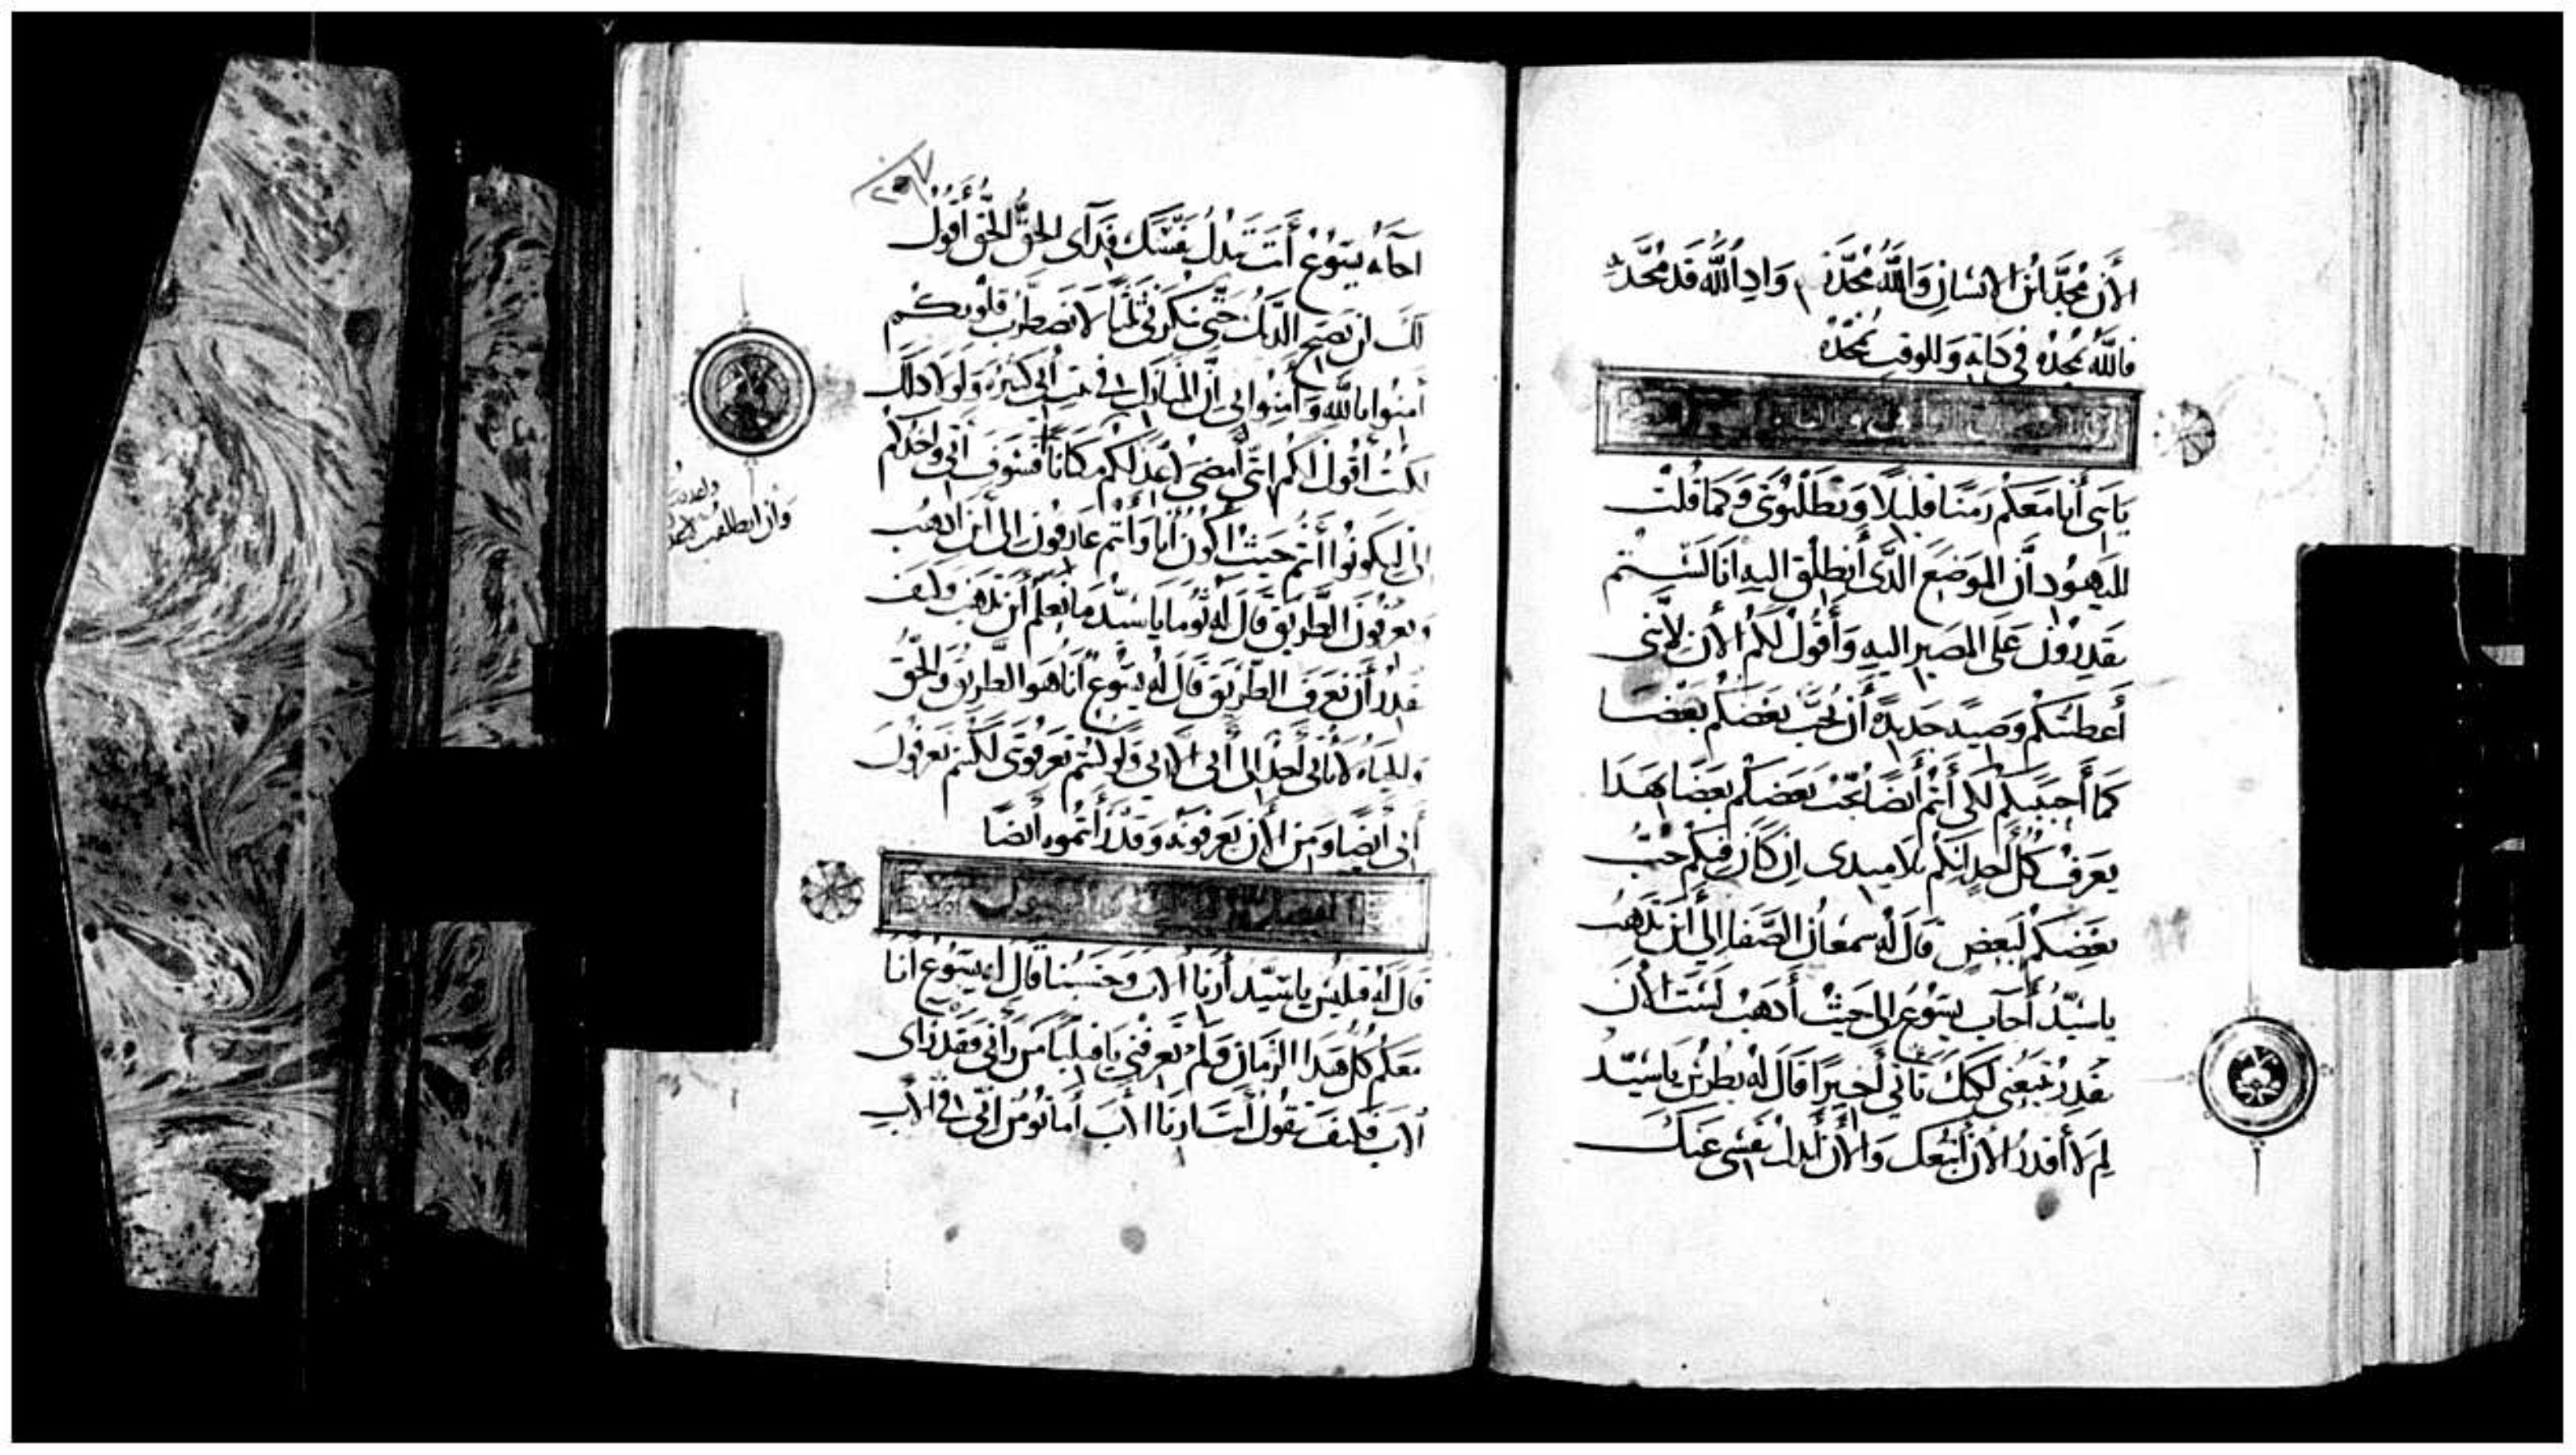 الأن مُجِّدَ ابْنُ الانسَانِ وَاللَّهُ مُجِّدَ بِهِ وَاِدِ اللَّه قَد مُجِّدَ بِهِ
فاللَّهُ يُمَجِّدُهُ في دَاتِهِ وَللوقتِ يُمَجِّدُهُ
يَابَنِيَّ أَنا مَعَكُمْ زَمَنًا قَلِيلًا وَتطْلُبُونِي وَكَمَا قُلْت
لليَهُود أَنَّ المَوضِعَ الَّذي أَنطلِق اليهِ أنَا لَسْتُم
تقدِرُونَ عَلَى المَصِيرِ اليهِ وَأَقُولُ لَكُم الأَن لِأَنِّي
أَعطيتكُم وَصيَّةً جَدِيدَةً أَن يُحِبّ بَعْضكُم بَعْضًا
كَمَا أَحبَبتكُم لكَي أَنتُم أيضًا يُحِبّ بَعضكُم بَعضًا بِهَدَا
يَعرِفُ كُلُّ أَحَدٍ انَّكُم تلاميدي اِن كَانَ فِيكُم حُبّ
بَعْضِكُم لبَعضٍ قَالَ لَهُ سمعَانُ الصَّفَا إلى أَينَ تَذْهَبُ
يا سَيِّدُ أَجَابَ يَسُوعُ الى حَيثُ أَدهَبُ لَستَ الأن
تقدِرُ تَتبَعني لَكِنَّكَ تَأتي أَخِيرًا قَالَ لَهُ بطرس يَاسَيِّد
لِمَ لَا أَقدرُ الأَن أَتْبَعكَ وَالأَن أَبدلُ نَفسِي عَنكَ
٢٠٧
اجابهُ يَسُوع أَنتَ تبْدُلُ نَفْسَكَ فِدَآي الحَقّ الحَقّ أَقُولُ
لَكَ ان يَصيح الدِّيك حَتَّى تنكرني ثلثًا لا تَضْطَرِب قلُوبكُم
آمنُوا باللَّه وَآمِنُوا بي اَنَّ المَنَازِل في بَيتِ أَبي كَثِيرَة وَلَولَا دلكَ
لكنتُ أَقُولُ لَكُم انِّي أَمضي اُعِدّ لَكُم مَكَانًا فسَوفَ آتي وَآخُدكُم
الَيَّ ليَكُونُوا أَنتُم حَيثُ أَكُون أَنا وَأَنتُم عَارفُونَ الى أَينَ ادهَب
وتعرفُونَ الطَّريقَ قَالَ لَهُ تُومَا يَا سَيِّد مَا نَعلم أَين تَذهب وكَيف
نقدرُ أَن نَعرفَ الطَّريقَ قَالَ لَهُ يَسُوع أَنَا هُوَ الطَّريق وَالحَقّ
وَالحَيَاة لَا يَأتي أَحَدٌ الى أَبي الّا بي وَلَو كنتُم تَعرفُوني لكنتُم تَعرفُونَ
أَبي أَيضًا وَمِنَ الأَن تَعرفُونَه وَقَد رَأَيتمُوه أَيضًا
قَالَ لَهُ فيلبس يا سَيِّد أَرِنَا الأب وَحَسْبُنَا قَالَ لَه يَسُوع أَنَا
مَعَكُم كُلّ هَدَا الزَّمَان وَلَم تَعرفني يَا فيلبّا مَن رَآني فَقَد رَأى
الأب فكيفَ تقُولُ أَنتَ أَرِنَا الأَبَ أَمَا تُؤمِنُ انّي في الأَبِ
وان انطلقت